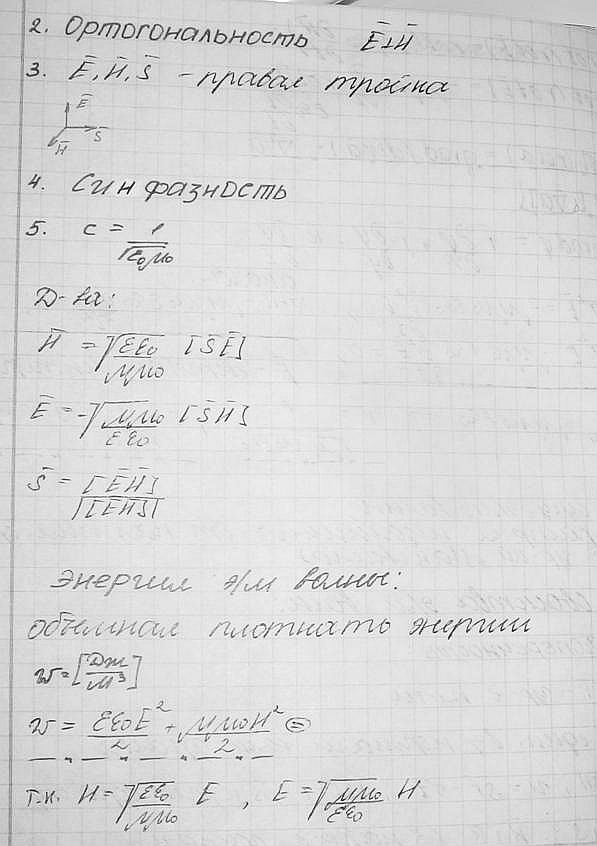 2. Ортогональность Ē⊥H̄
3. Ē, H̄, S̄ - правая тройка
Ē
S̄
H̄
4. Синфазность
5. c = 1/√(ε₀μ₀)
Д-ва:
H̄ = √(εε₀/μμ₀) [S̄Ē]
Ē = -√(μμ₀/εε₀) [S̄H̄]
S̄ = [ĒH̄]/|[ĒH̄]|
Энергия э/м волны:
объемная плотность энергии
w = [Дж/м³]
w = εε₀E²/2 + μμ₀H²/2 ⊜
т.к. H = √(εε₀/μμ₀) E, E = √(μμ₀/εε₀) H